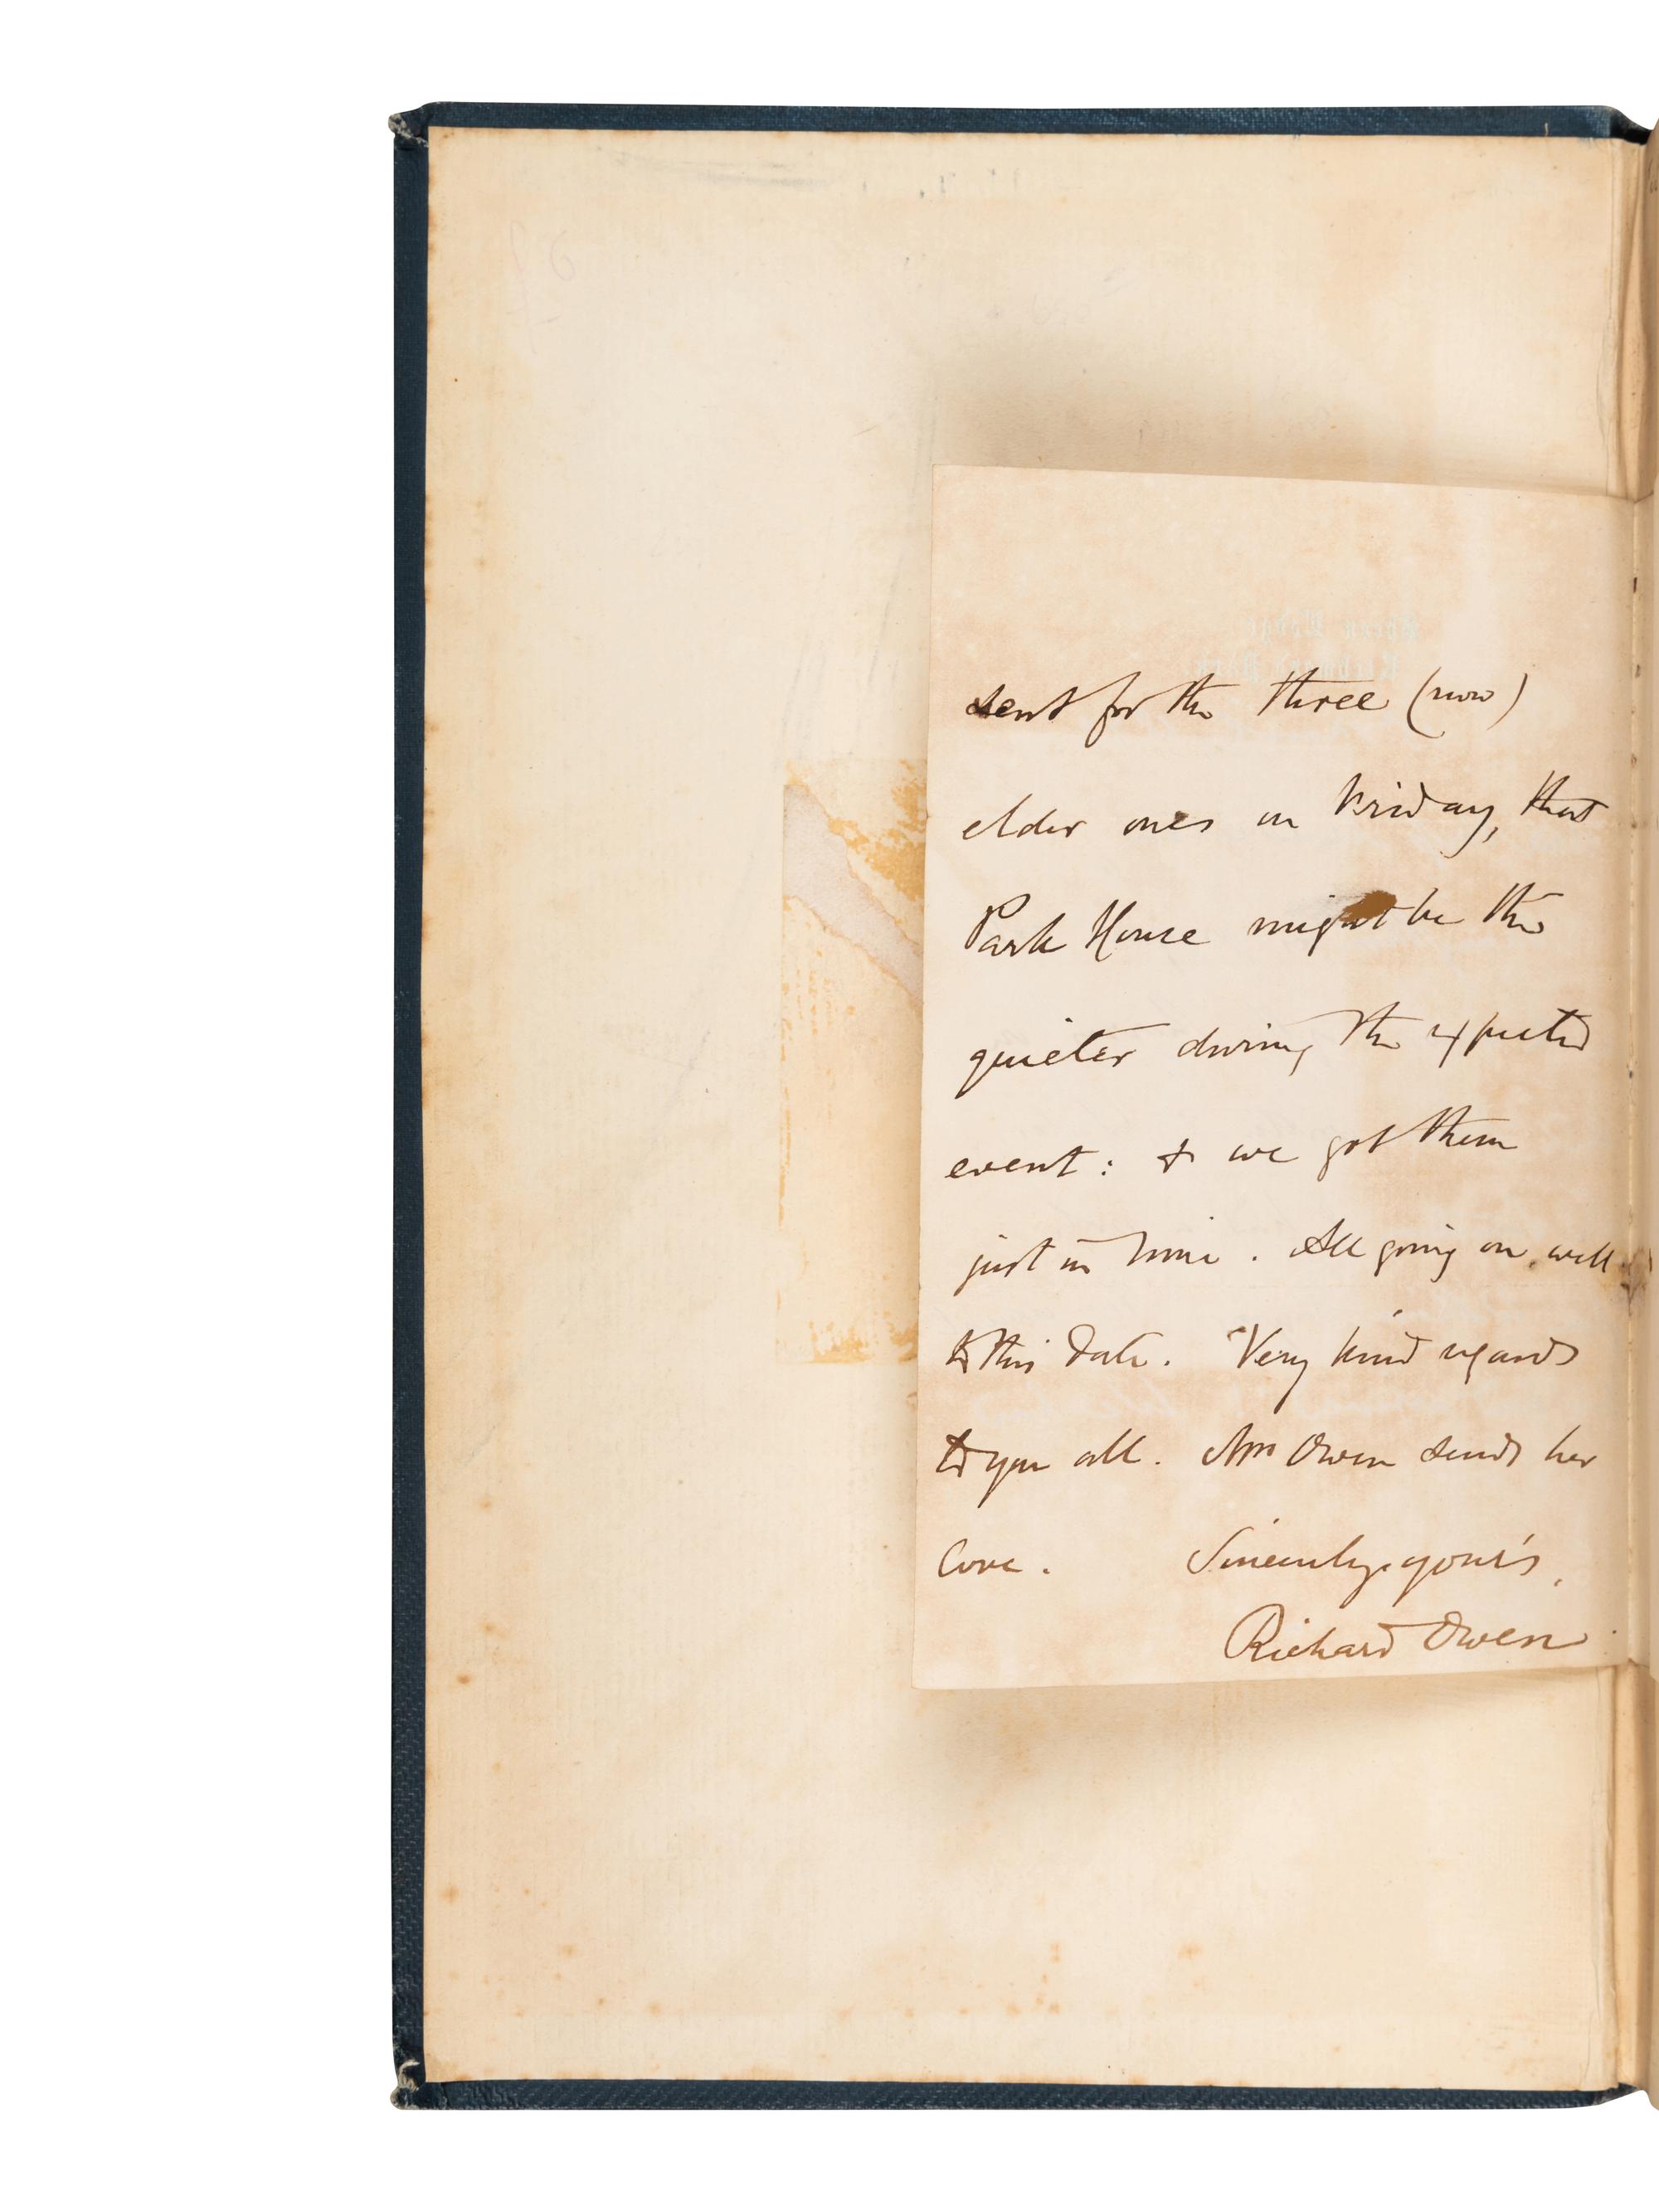 sent for the three (now)
elder ones on Friday, that
Park House might be the
quieter during the expected
event: & we got them
just in time. All going on well
to this date. Very kind regards
to you all. Mrs Owen sends her
love. Sincerely your's,
Richard Owen